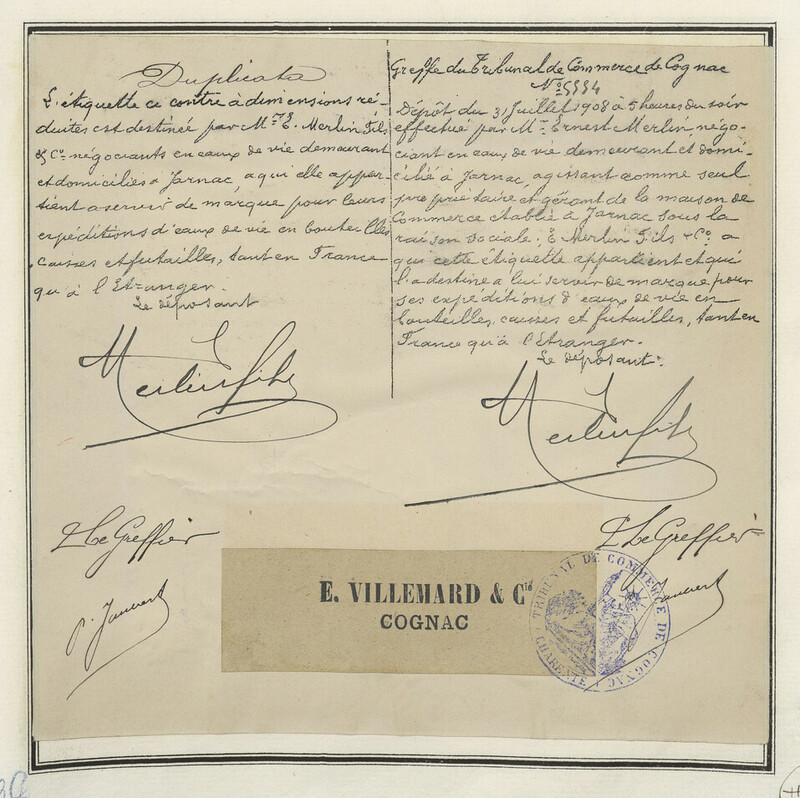 Duplicata
L'étiquette ci contre à dimensions ré-
duites est destinée par Mrs E. Merlin Fils
& Co. négociants en eaux de vie demeurant
et domiciliés à Jarnac, a qui elle appar-
tient a servir de marque pour leurs
expéditions d'eaux de vie en bouteilles
caisses et futailles, tant en France
qu'à l'Etranger.
Le déposant
Merlin fils
Le Greffier
P. Jauvert
Greffe du Tribunal de Commerce de Cognac
No 5554
Dépôt du 31 Juillet 1908 à 5 heures du soir
effectué par Mr Ernest Merlin, négo-
ciant en eaux de vie demeurant et domi-
cilié à Jarnac, agissant comme seul
propriétaire et gérant de la maison de
Commerce établie à Jarnac sous la
raison sociale: E Merlin Fils & Co. a
qui cette étiquette appartient et qui
l'a destine a lui servir de marque pour
ses expéditions d'eaux de vie en
bouteilles, caisses et futailles, tant en
France qu'à l'Etranger.
Le déposant:
Merlin fils
Le Greffier
Jauvert
E. VILLEMARD & Cie
COGNAC
TRIBUNAL DE COMMERCE DE COGNAC
CHARENTE